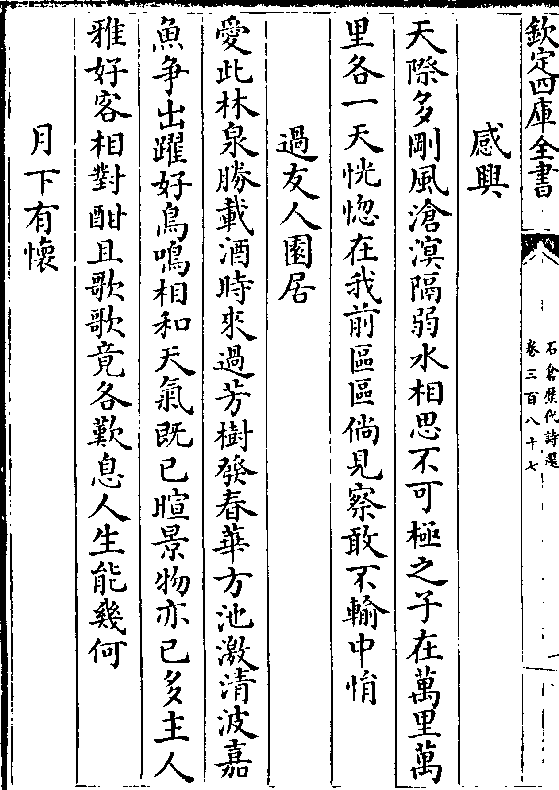 欽定四庫全書
石倉歷代詩選
卷三百八十七
感興
天際多剛風滄溟隔弱水相思不可極之子在萬里萬
里各一天恍惚在我前區區倘見察敢不輸中悁
過友人園居
愛此林泉勝載酒時來過芳樹發春華方池激清波嘉
魚爭出躍好鳥鳴相和天氣既已暄景物亦已多主人
雅好客相對酣且歌歌竟各歎息人生能幾何
月下有懷